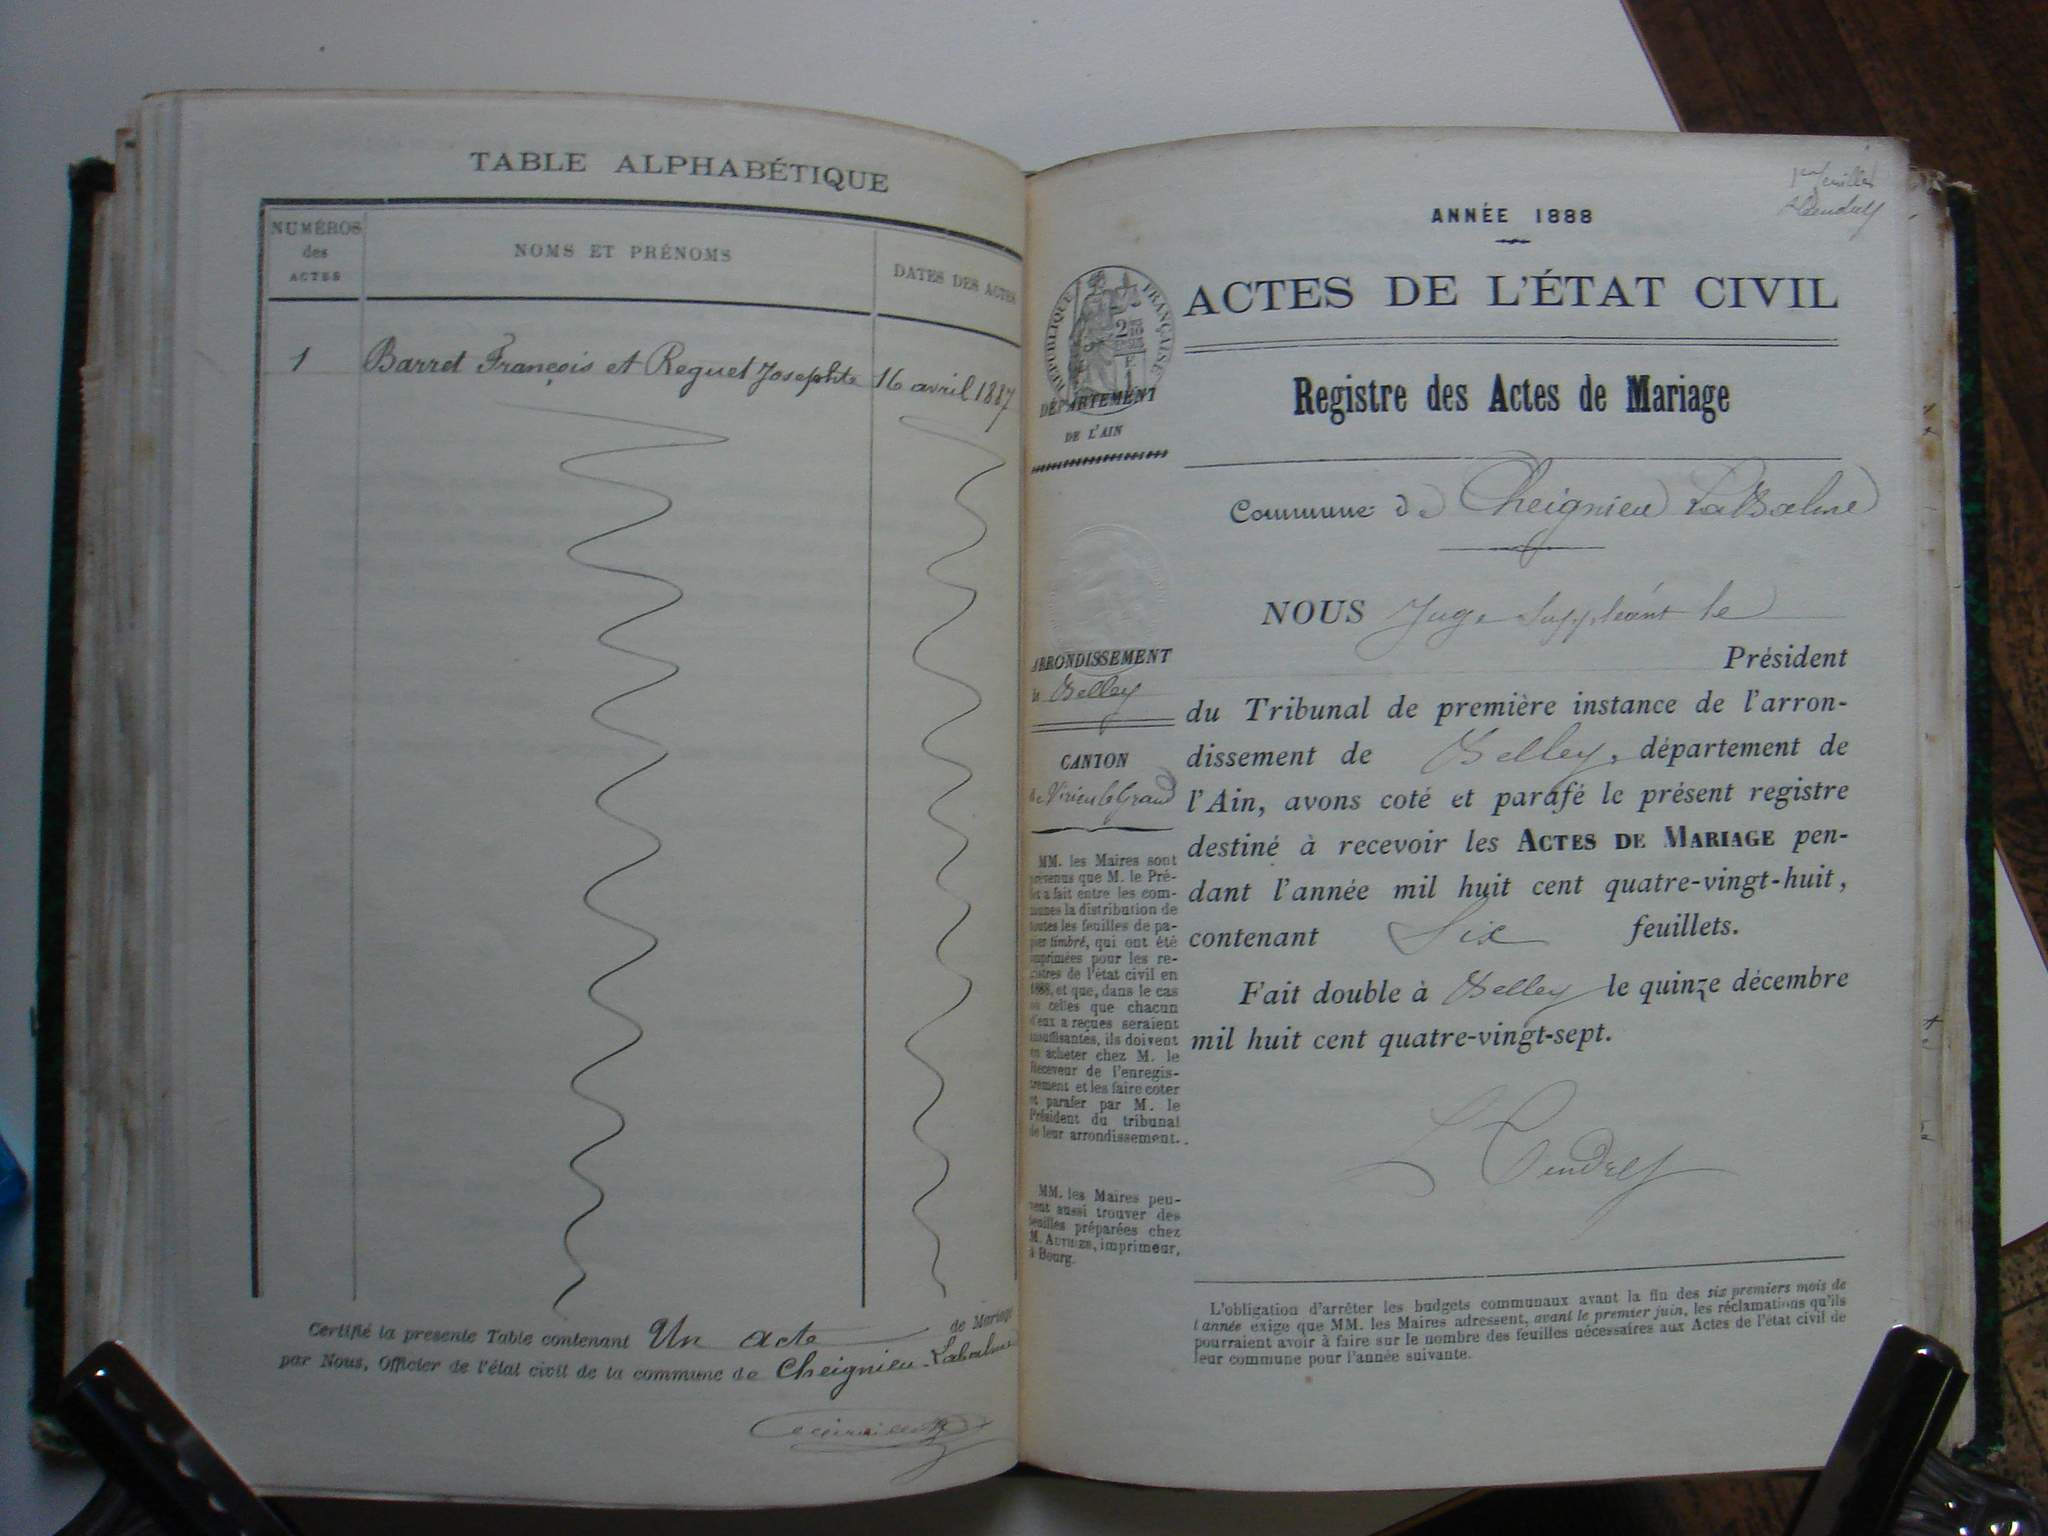 TABLE ALPHABÉTIQUE
NUMÉROS
des
ACTES
NOMS ET PRÉNOMS
DATES DES ACTES
1 Barret François et Reguet Josephte 16 avril 1887
Certifié la présente Table contenant Un acte de Mariage
par Nous, Officier de l'état civil de la commune de Cheignieu-Labalme
1er feuillet
ANNÉE 1888
ACTES DE L'ÉTAT CIVIL
RÉPUBLIQUE FRANÇAISE
DÉPARTEMENT
DE L'AIN
Registre des Actes de Mariage
Commune de Cheignieu LaBalme
NOUS Juge Suppléant le
Président
du Tribunal de première instance de l'arron-
dissement de Belley, département de
l'Ain, avons coté et parafé le présent registre
destiné à recevoir les ACTES DE MARIAGE pen-
dant l'année mil huit cent quatre-vingt-huit,
contenant Six feuillets.
Fait double à Belley le quinze décembre
mil huit cent quatre-vingt-sept.
ARRONDISSEMENT
de Belley
CANTON
de Virieu le Grand
MM. les Maires sont
prévenus que M. le Pré-
fet a fait entre les com-
munes la distribution de
toutes les feuilles de pa-
pier timbré, qui ont été
imprimées pour les re-
gistres de l'état civil en
1888, et que, dans le cas
où celles que chacun
d'eux a reçues seraient
insuffisantes, ils doivent
en acheter chez M. le
Receveur de l'enregis-
trement et les faire coter
et parafer par M. le
Président du tribunal
de leur arrondissement.
MM. les Maires peu-
vent aussi trouver des
feuilles préparées chez
M. AUTHIER, imprimeur,
à Bourg.
L'obligation d'arrêter les budgets communaux avant la fin des six premiers mois de
l'année exige que MM. les Maires adressent, avant le premier juin, les réclamations qu'ils
pourraient avoir à faire sur le nombre des feuilles nécessaires aux Actes de l'état civil de
leur commune pour l'année suivante.